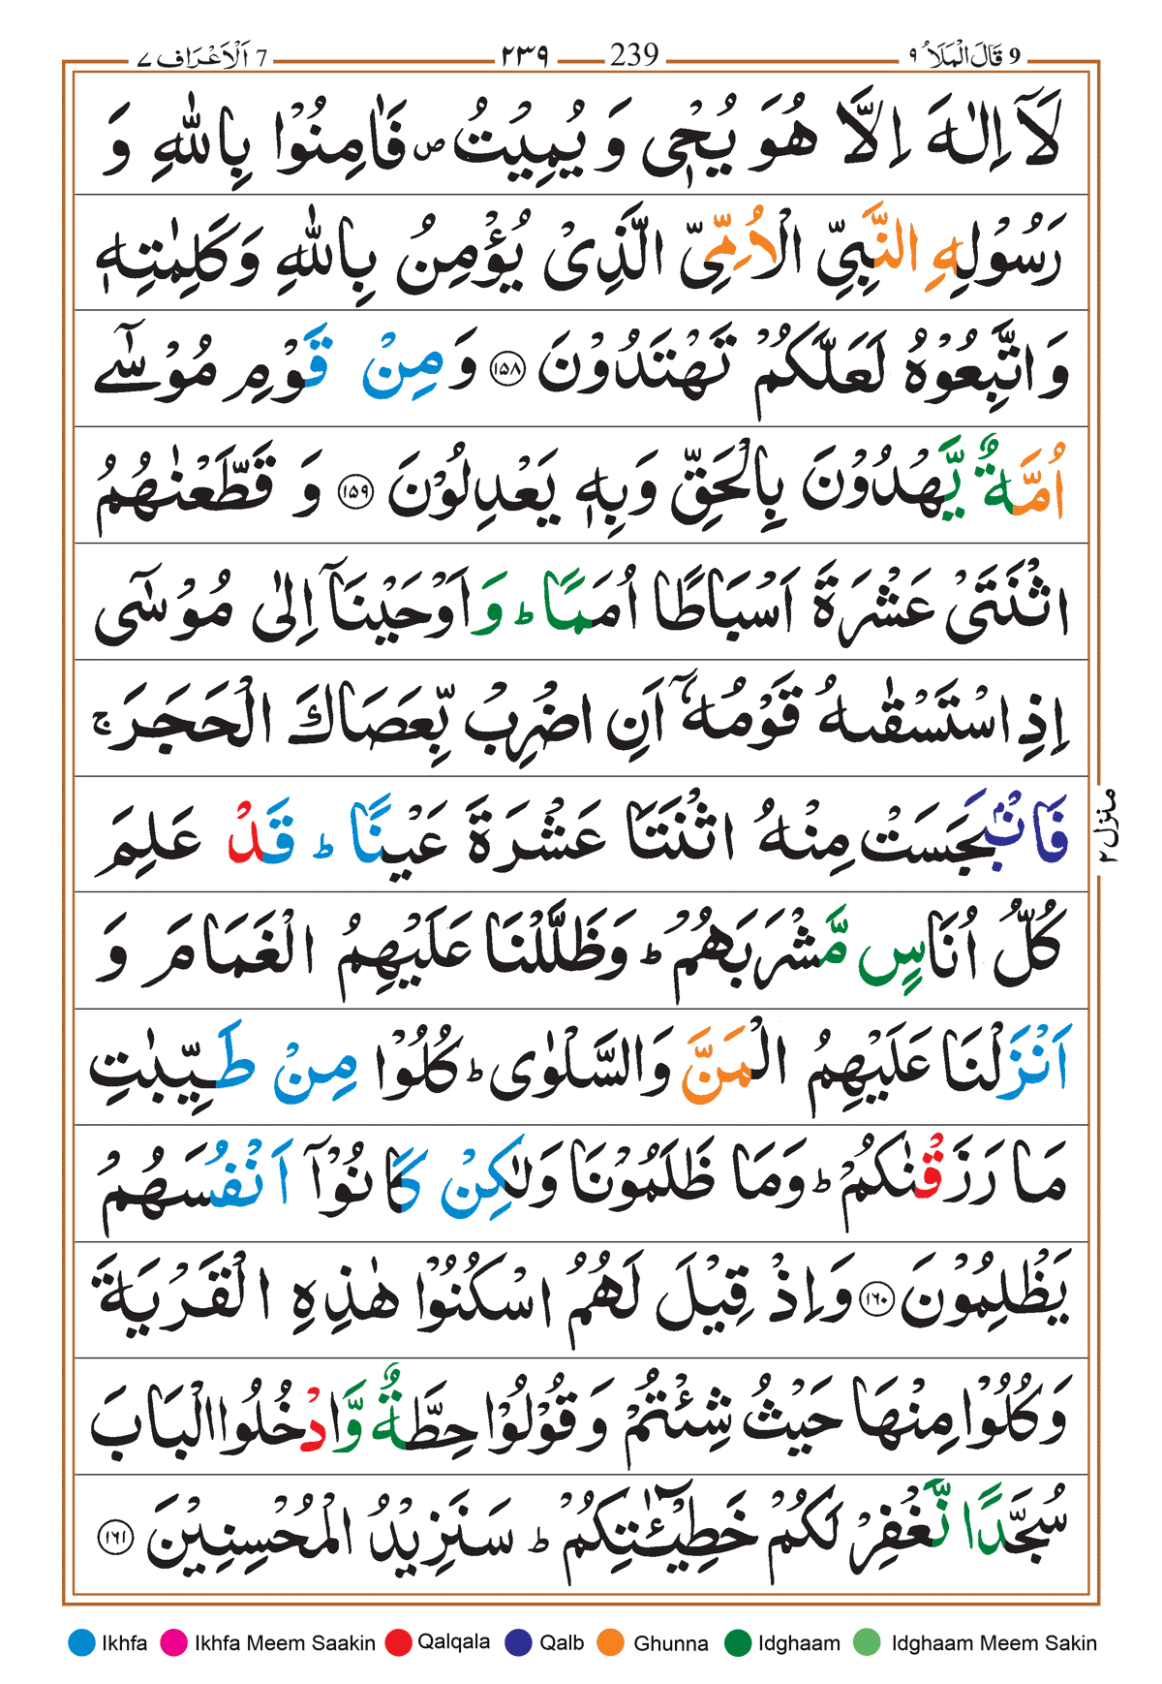 9 قَالَ الْمَلَاُ ٩ 239 ٢٣٩ 7 اَلْاَعْرَاف ٧
لَاۤ اِلٰهَ اِلَّا هُوَ يُحْيٖ وَ يُمِيْتُ ۪ فَاٰمِنُوْا بِاللّٰهِ وَ
رَسُوْلِهِ النَّبِيِّ الْاُمِّيِّ الَّذِيْ يُؤْمِنُ بِاللّٰهِ وَكَلِمٰتِهٖ
وَاتَّبِعُوْهُ لَعَلَّكُمْ تَهْتَدُوْنَ ﴿١٥٨﴾ وَمِنْ قَوْمِ مُوْسٰٓى
اُمَّةٌ يَّهْدُوْنَ بِالْحَقِّ وَبِهٖ يَعْدِلُوْنَ ﴿١٥٩﴾ وَ قَطَّعْنٰهُمُ
اثْنَتَيْ عَشْرَةَ اَسْبَاطًا اُمَمًا ؕ وَاَوْحَيْنَاۤ اِلٰى مُوْسٰٓى
اِذِ اسْتَسْقٰىهُ قَوْمُهٗۤ اَنِ اضْرِبْ بِّعَصَاكَ الْحَجَرَ ۚ
فَانْۢبَجَسَتْ مِنْهُ اثْنَتَا عَشْرَةَ عَيْنًا ؕ قَدْ عَلِمَ
كُلُّ اُنَاسٍ مَّشْرَبَهُمْ ؕ وَظَلَّلْنَا عَلَيْهِمُ الْغَمَامَ وَ
اَنْزَلْنَا عَلَيْهِمُ الْمَنَّ وَالسَّلْوٰى ؕ كُلُوْا مِنْ طَيِّبٰتِ
مَا رَزَقْنٰكُمْ ؕ وَمَا ظَلَمُوْنَا وَلٰكِنْ كَانُوْۤا اَنْفُسَهُمْ
يَظْلِمُوْنَ ﴿١٦٠﴾ وَاِذْ قِيْلَ لَهُمُ اسْكُنُوْا هٰذِهِ الْقَرْيَةَ
وَكُلُوْا مِنْهَا حَيْثُ شِئْتُمْ وَقُوْلُوْا حِطَّةٌ وَّادْخُلُوا الْبَابَ
سُجَّدًا نَّغْفِرْ لَكُمْ خَطِيْٓـٰٔتِكُمْ ؕ سَنَزِيْدُ الْمُحْسِنِيْنَ ﴿١٦١﴾
منزل ٢
Ikhfa Ikhfa Meem Saakin Qalqala Qalb Ghunna Idghaam Idghaam Meem Sakin